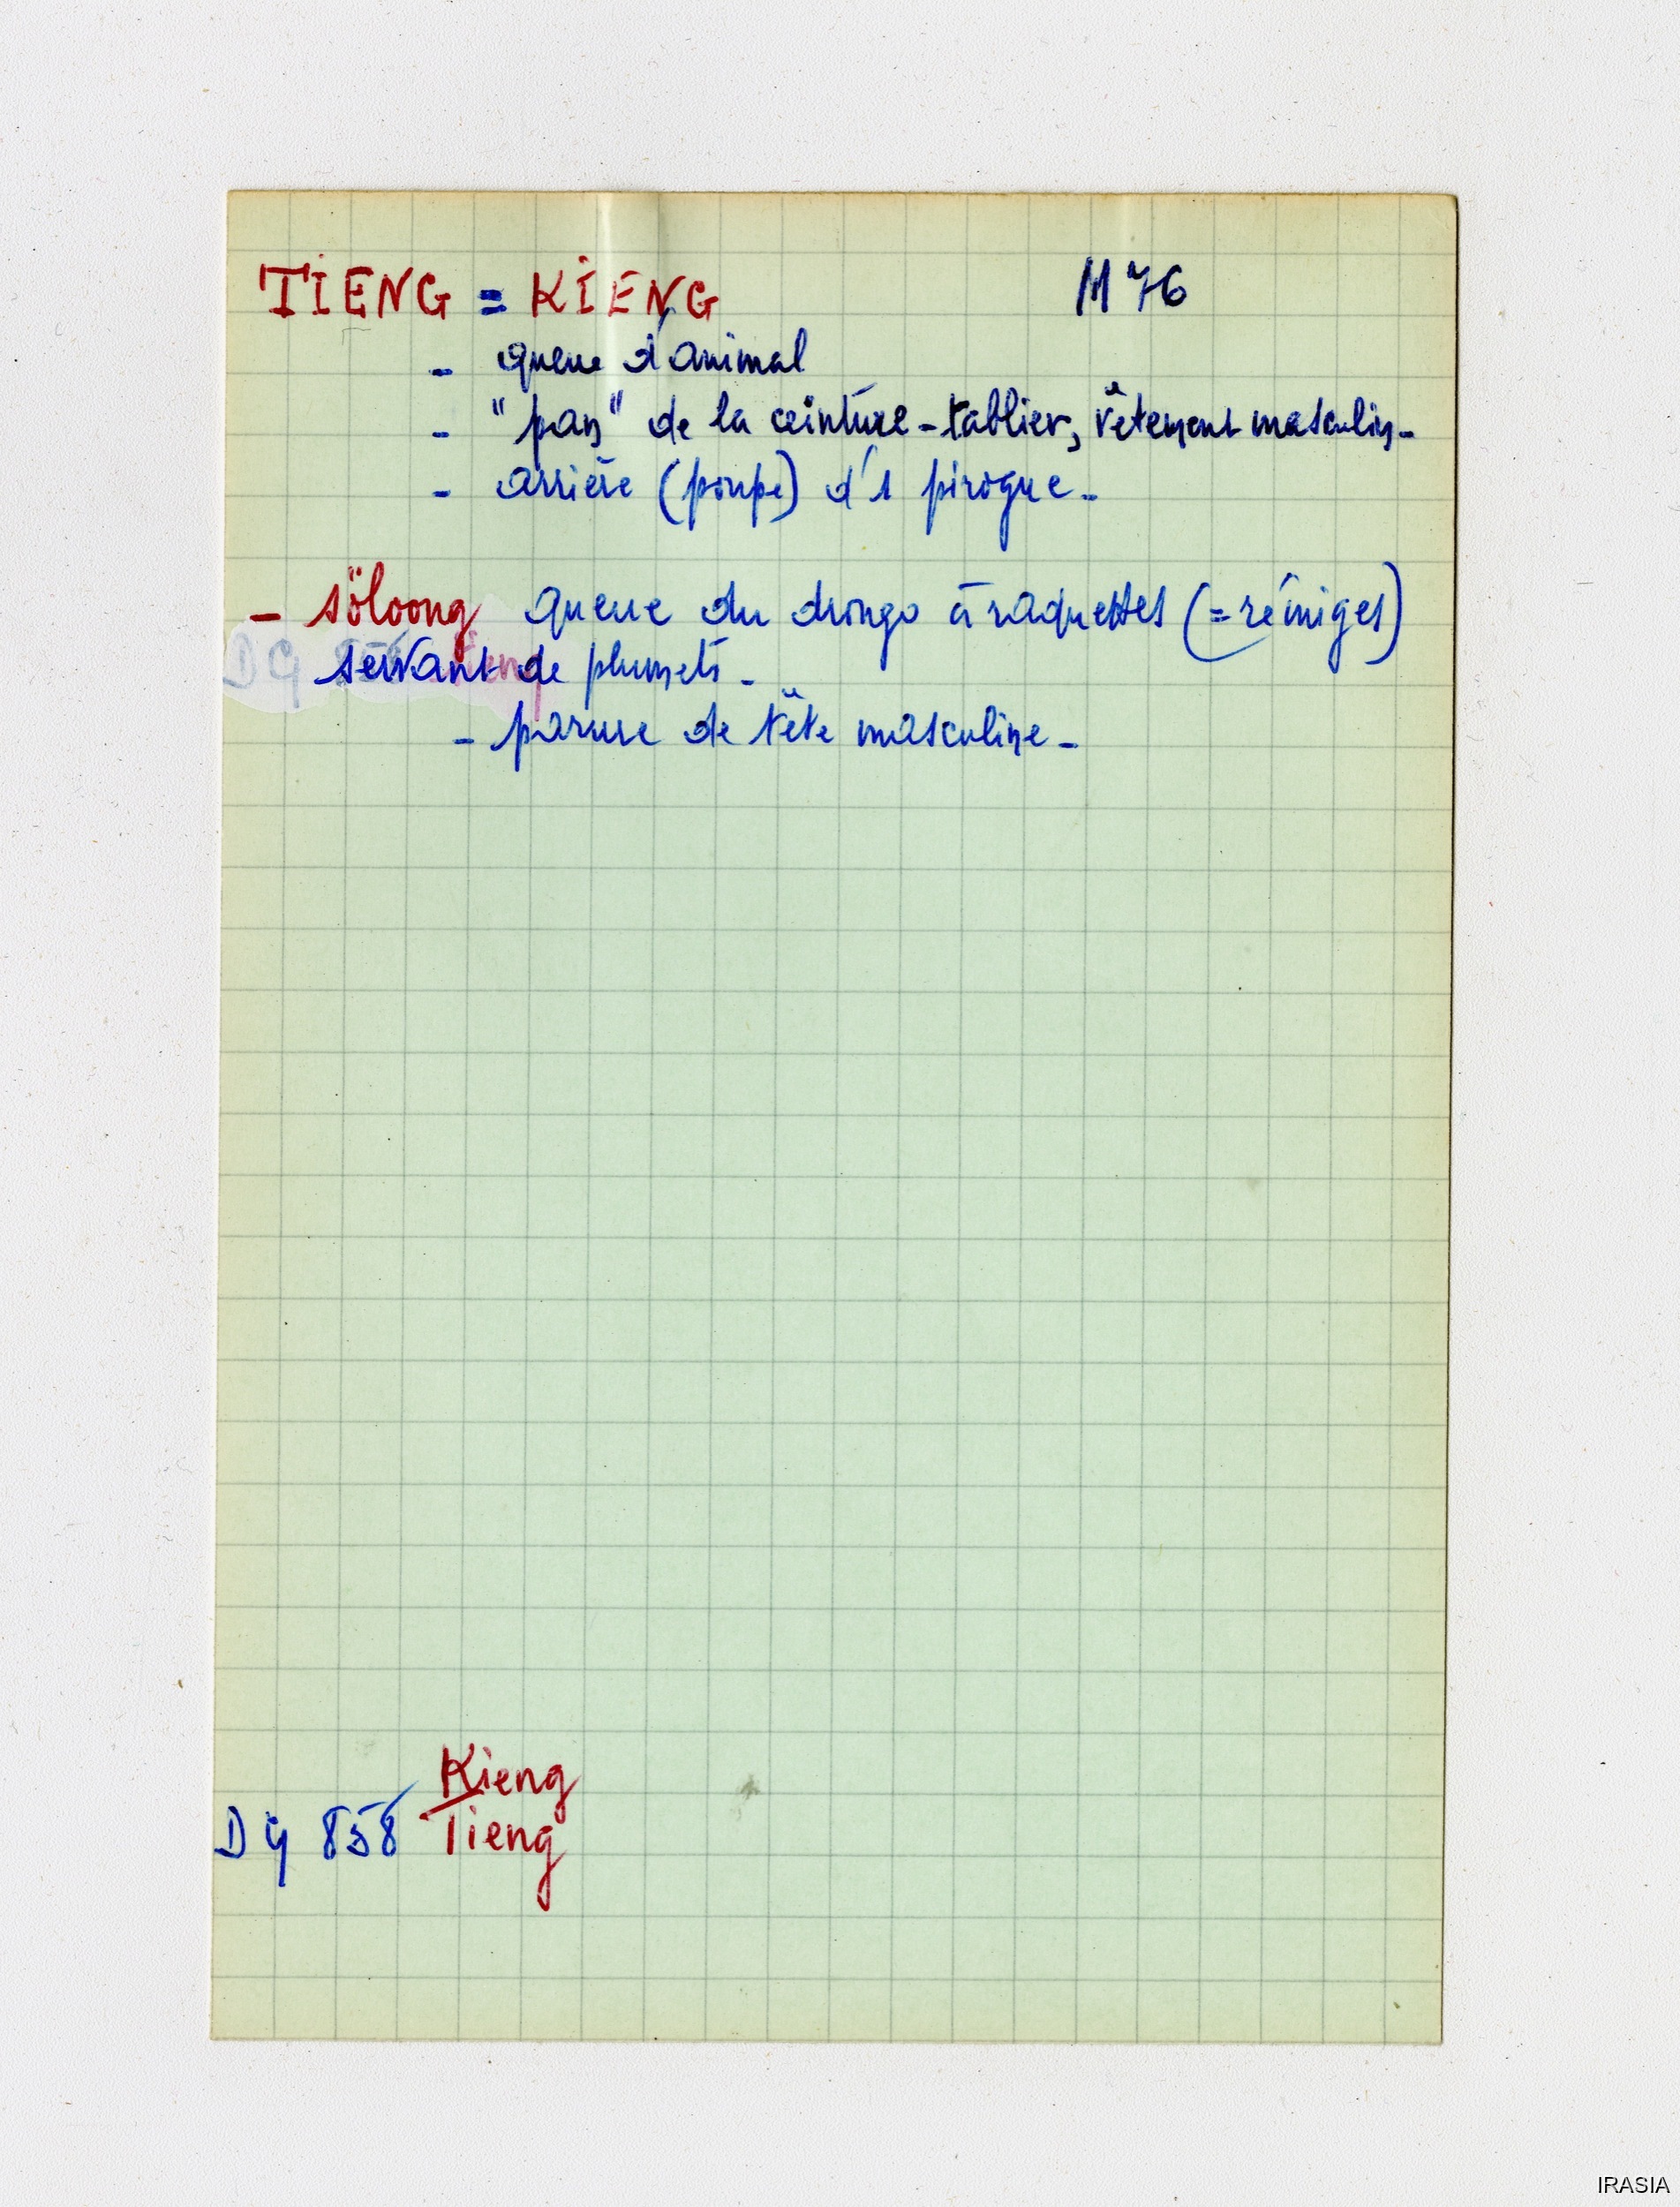 TIENG = KIENG M 76
- queue d'animal
- "pan" de la ceinture-tablier, vêtement masculin -
- arrière (poupe) d'1 pirogue -
- söloong queue du drongo à raquettes (= rémiges)
servant de plumets -
- parure de tête masculine -
Kieng
DG 858 Tieng
IRASIA